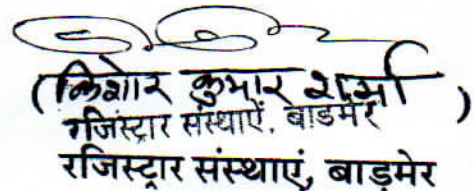 (किशोर कुमार शर्मा)
रजिस्ट्रार संस्थाऐं, बाडमेर
रजिस्ट्रार संस्थाएं, बाड़मेर